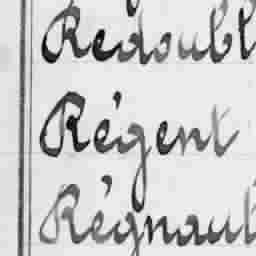 Redoubl
Régent
Régnaul